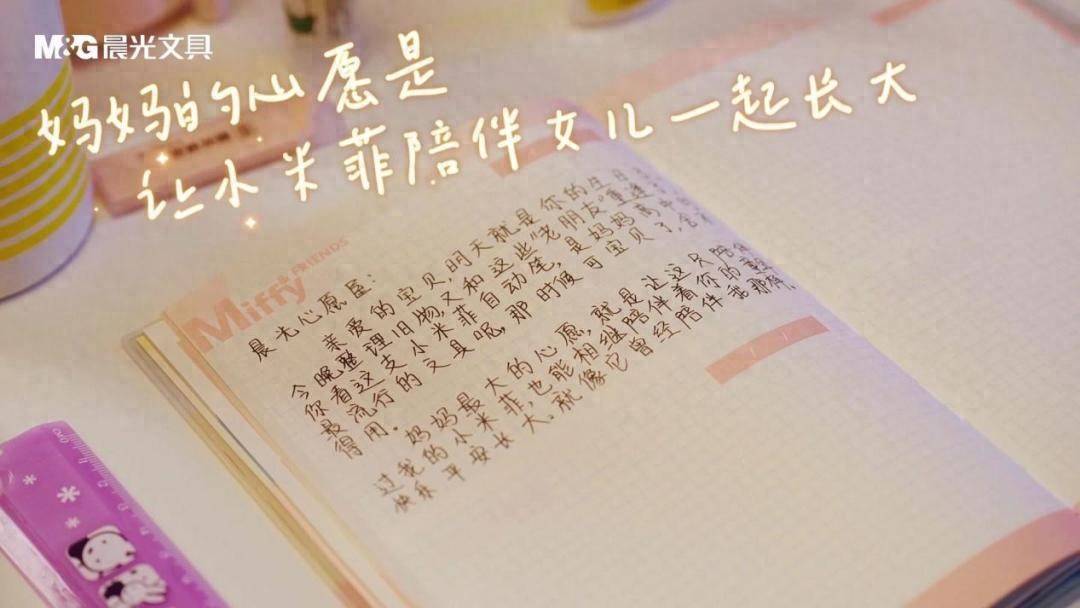 M&G晨光文具
妈妈的心愿是
让小米菲陪伴女儿一起长大
Miffy & FRIENDS
晨光心愿臣：
亲爱的宝贝，明天就是你的生日
今晚整理旧物，又和这些"老朋友"重逢
你看这支小米菲自动笔，是妈妈高中
最流行的文具呢，那时候可宝贝了，舍不
得用。
妈妈最大的心愿，就是让这只陪伴
过我的小米菲，也能相继陪伴着你的童年
快乐平安长大。就像它曾经陪伴我那样。